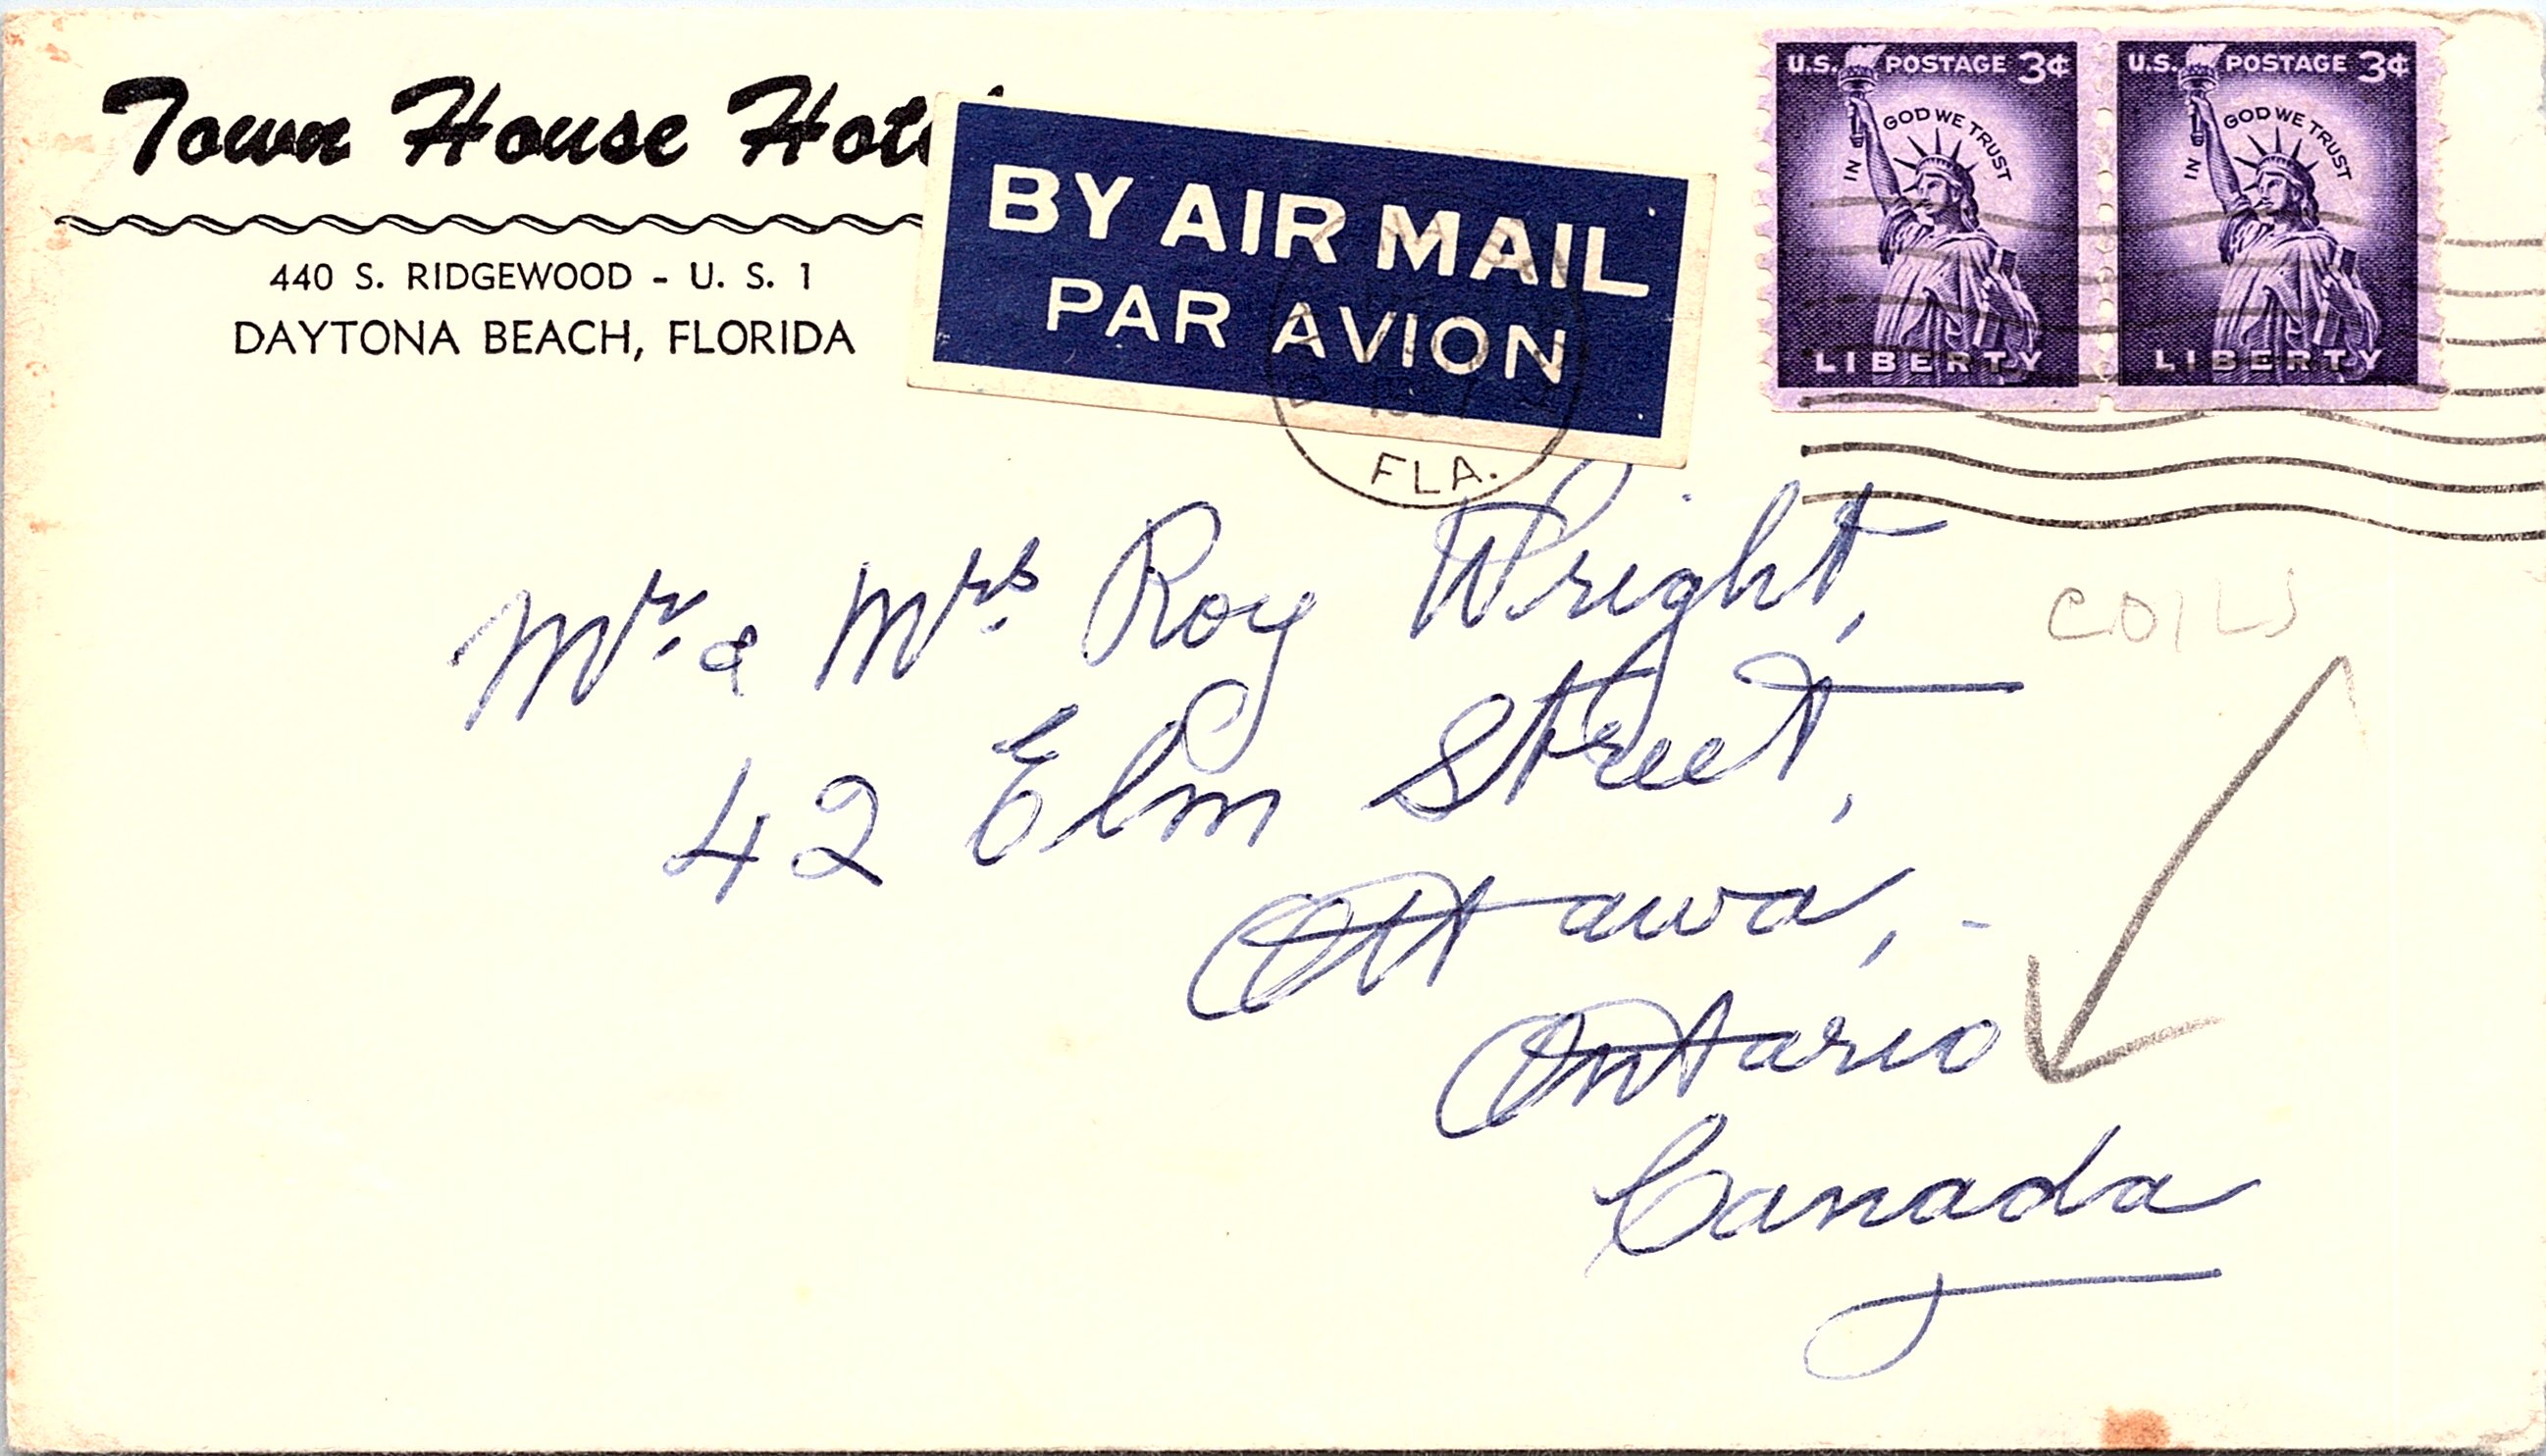 Town House Hot
440 S. RIDGEWOOD - U. S. 1
DAYTONA BEACH, FLORIDA
BY AIR MAIL
PAR AVION
FLA.
U.S. POSTAGE 3¢
IN GOD WE TRUST
LIBERTY
U.S. POSTAGE 3¢
IN GOD WE TRUST
LIBERTY
Mr. & Mrs. Roy Wright,
42 Elm Street,
Ottawa, -
Ontario
Canada
COILS